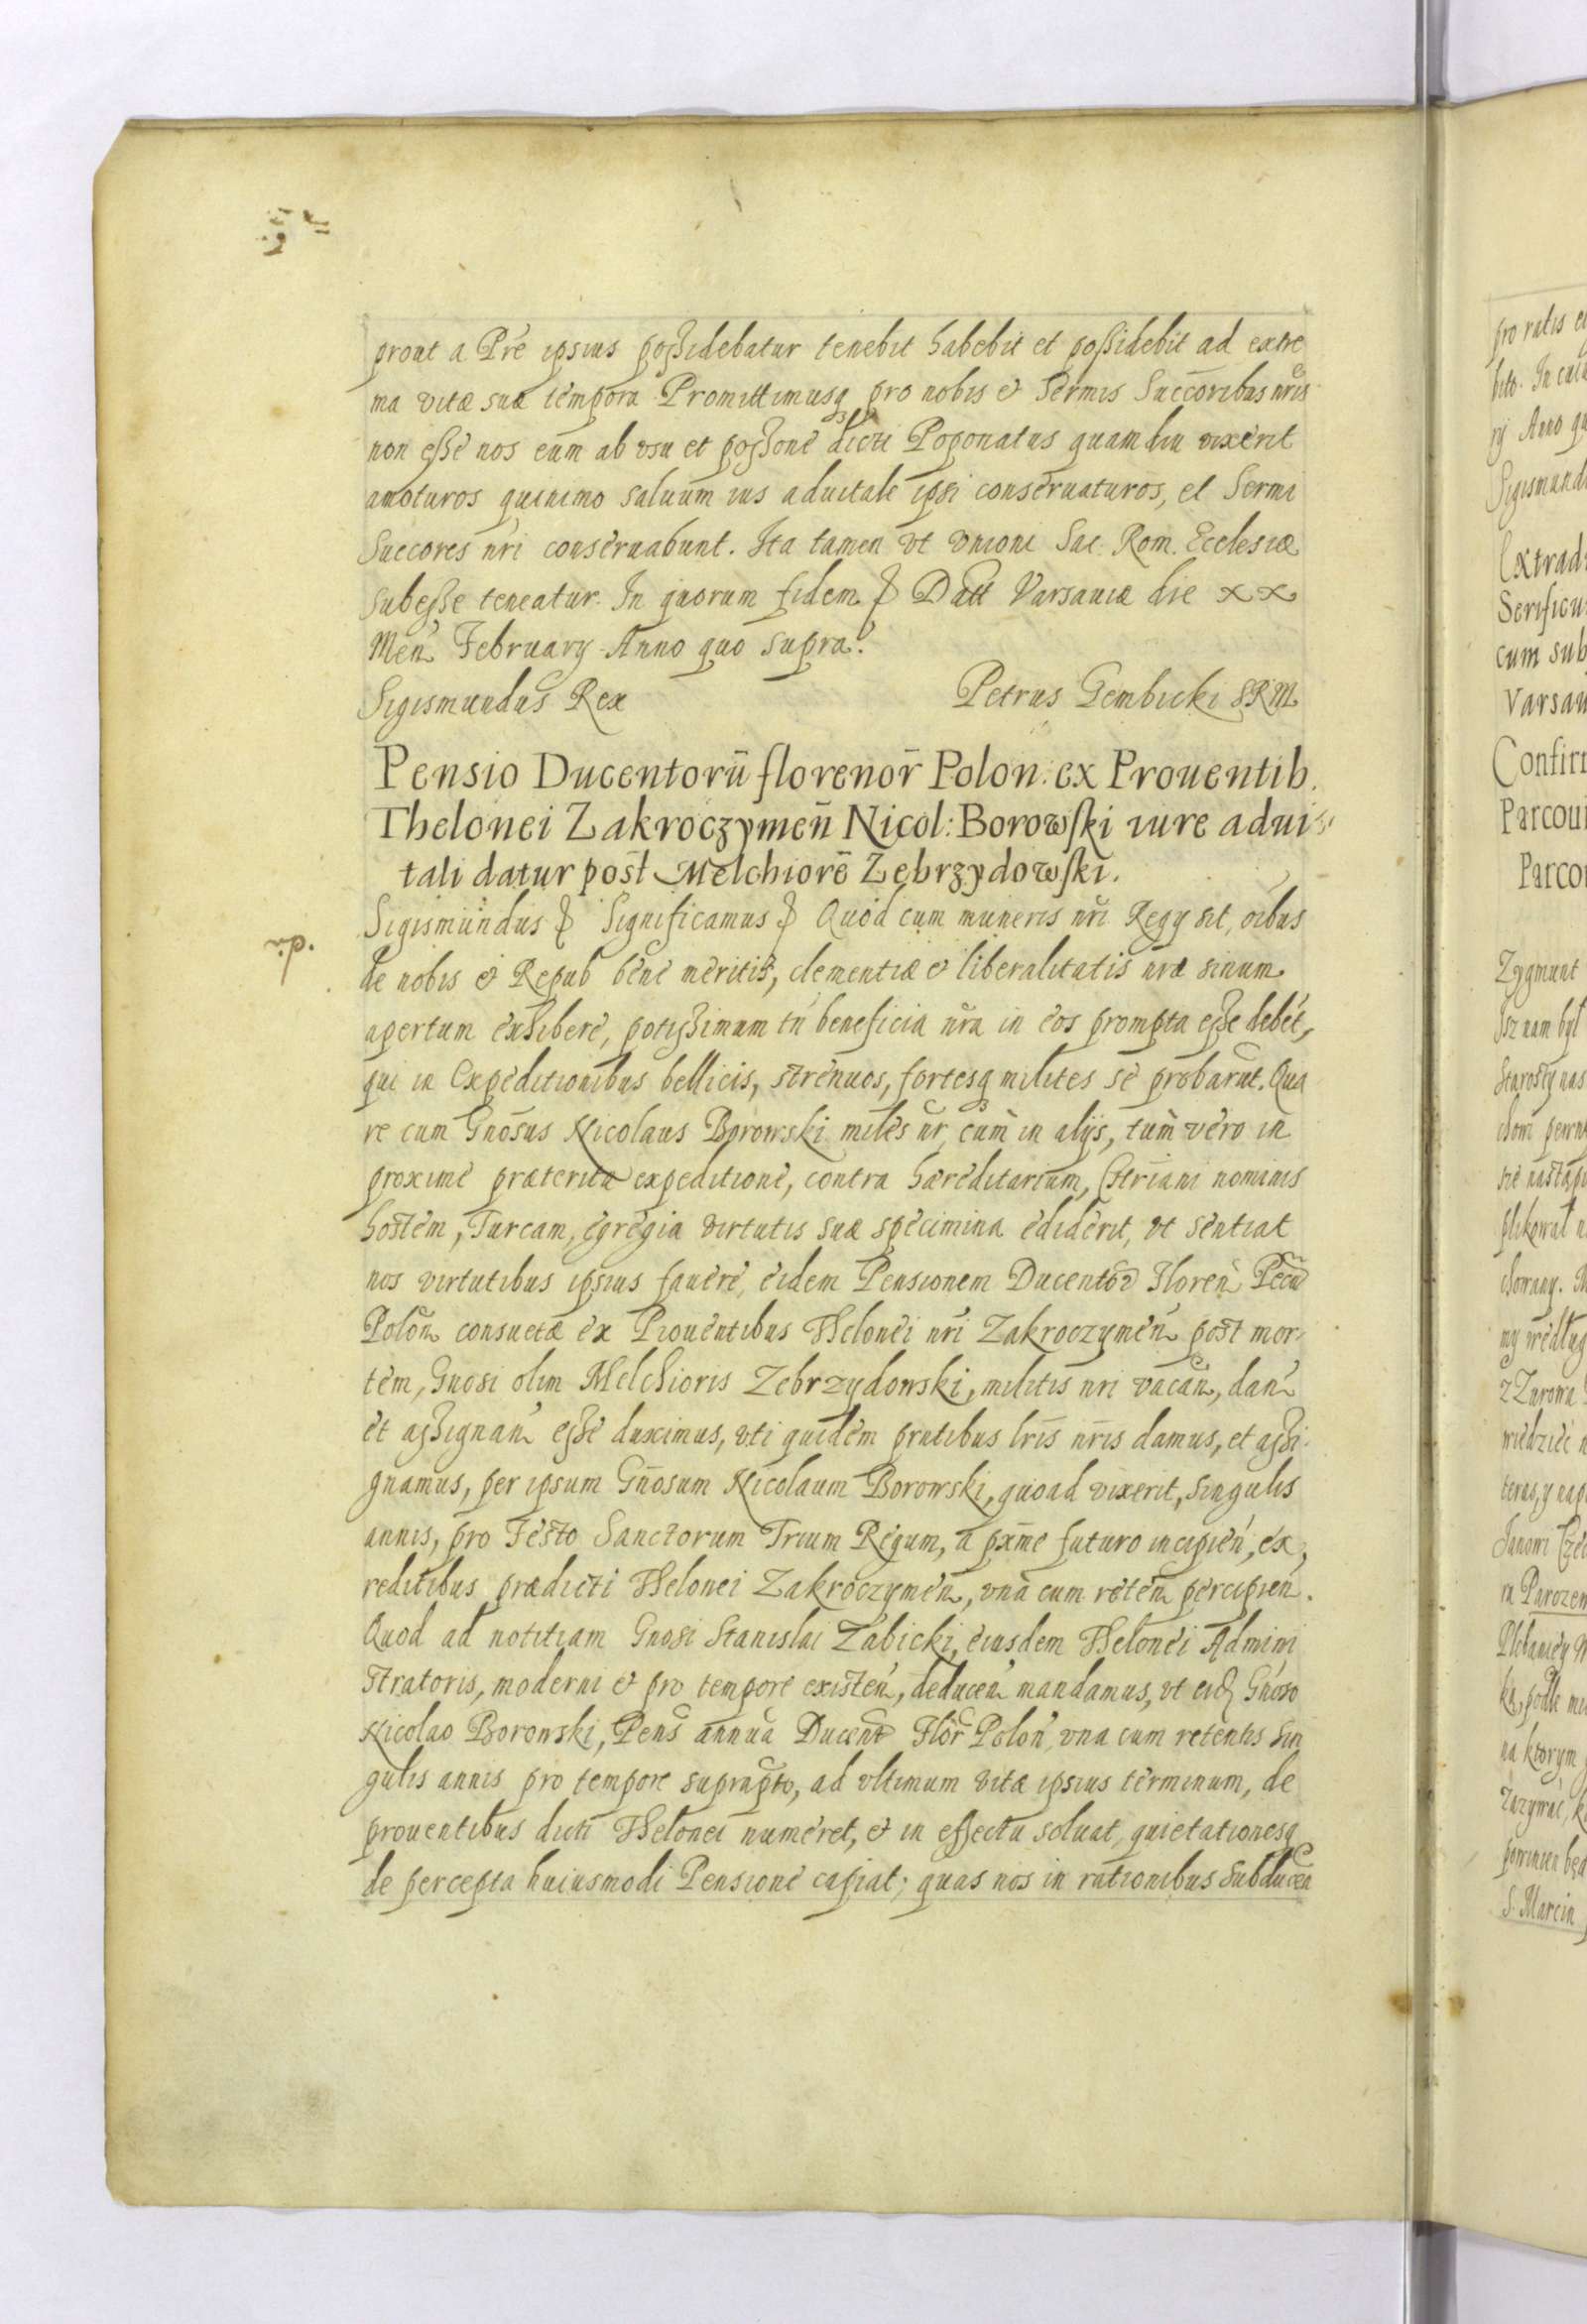 prout a Pre ipsius possidebatur tenebit habebit et possidebit ad extre
ma vitæ suæ tempora Promittimusq pro nobis et Sermis Succoribus nris
non esse nos eum ab vsu et possone dicti Poponatus quamdiu vixerit
amoturos quinimo saluum ius aduitale ipsi conseruaturos, et Sermi
Succores nri conseruabunt. Ita tamen vt vnioni Sac. Rom. Ecclesiæ
subesse teneatur. In quorum fidem & Datt Varsauiæ die XX
Men February Anno quo supra.
Sigismundus Rex Petrus Gembicki SRM
Pensio Ducentorū florenor̄ Polon: ex Prouentib.
Thelonei Zakroczymen̄ Nicol: Borowski iure adui
tali datur post Melchiorē Zebrzydowski.
Sigismundus & Significamus & Quod cum muneris nri Regy sit, oibus
de nobis et Repub bene meritis, clementiæ et liberalitatis nræ sinum
apertum exhibere, potissimum tn beneficia nra in eos prompta esse debet,
qui in Expeditionibus bellicis, strenuos, fortesq milites se probarnt. Qua
re cum Gnosus Nicolaus Borowski miles nr, cum in alijs, tum vero in
proxime præterita expeditione, contra hæreditarium, Chriani nominis
hostem, Turcam, egregia virtutis suæ specimina ediderit, vt sentiat
nos virtutibus ipsius fauere, eidem Pensionem Ducentor Floren Pecu
Polon consuetæ ex Prouentibus Thelonei nri Zakroczymen post mor
tem, Gnosi olim Melchioris Zebrzydowski, militis nri vacan, dan
et assignan esse duximus, vti quidem pntibus lris nris damus, et assi
gnamus, per ipsum Gnosum Nicolaum Borowski, quoad vixerit, singulis
annis, pro Festo Sanctorum Trium Regum, a pxme futuro incipien, ex
reditibus prædicti Thelonei Zakroczymen, vna cum reten percipien.
Quod ad notitiam Gnosi Stanislai Zabicki, eiusdem Thelonei Admini
stratoris, moderni et pro tempore existen, deducen mandamus, vt eid Gnoso
Nicolao Borowski, Pens annua Ducent Flor Polon, vna cum retentis sin
gulis annis pro tempore suprapto, ad vltimum vitæ ipsius terminum, de
prouentibus dicti Thelonei numeret, et in effectu soluat, quietationesq
de percepta huiusmodi Pensione capiat; quas nos in rationibus subducen